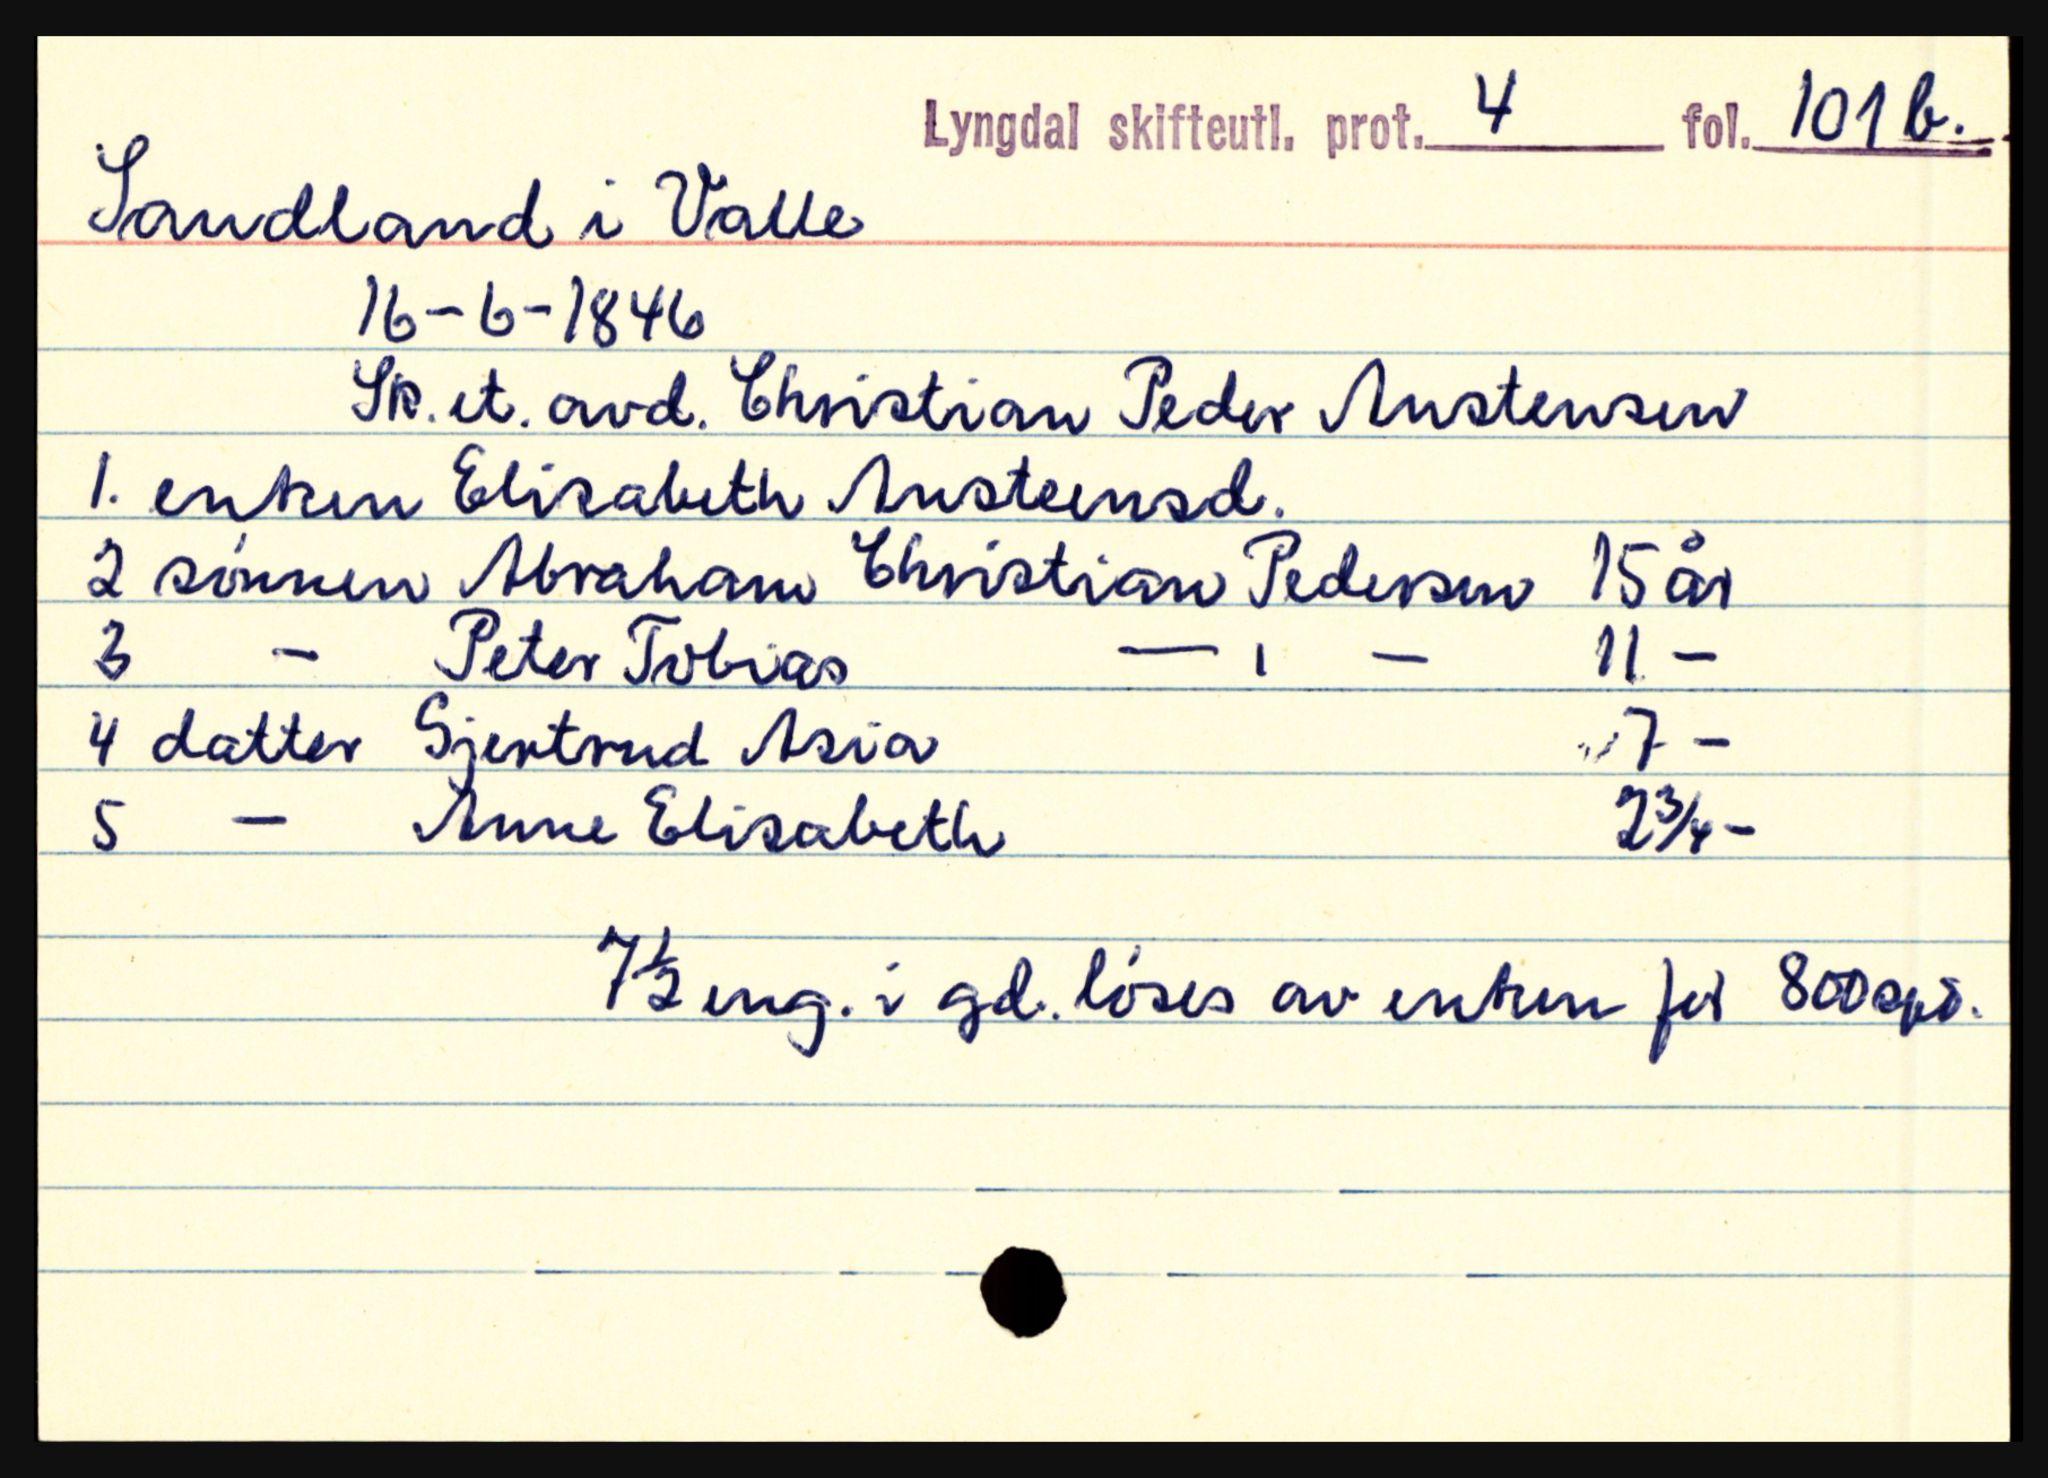 Lyngdal skifteutl. prot. 4 fol. 101 b.
Sandland i Valle
16-6-1846
Sk. et. avd. Christian Peder Austensen
1. enken Elisabeth Austeensd.
2 sönnen Abraham Christian Pedersen 15 år
3 - Peter Tobias — ı — 11 -
4 datter Gjertrud Asia 7 -
5 - Anne Elisabeth 2 3/4 -
7 1/2 eng. i gd. löses av enken for 800 spd.